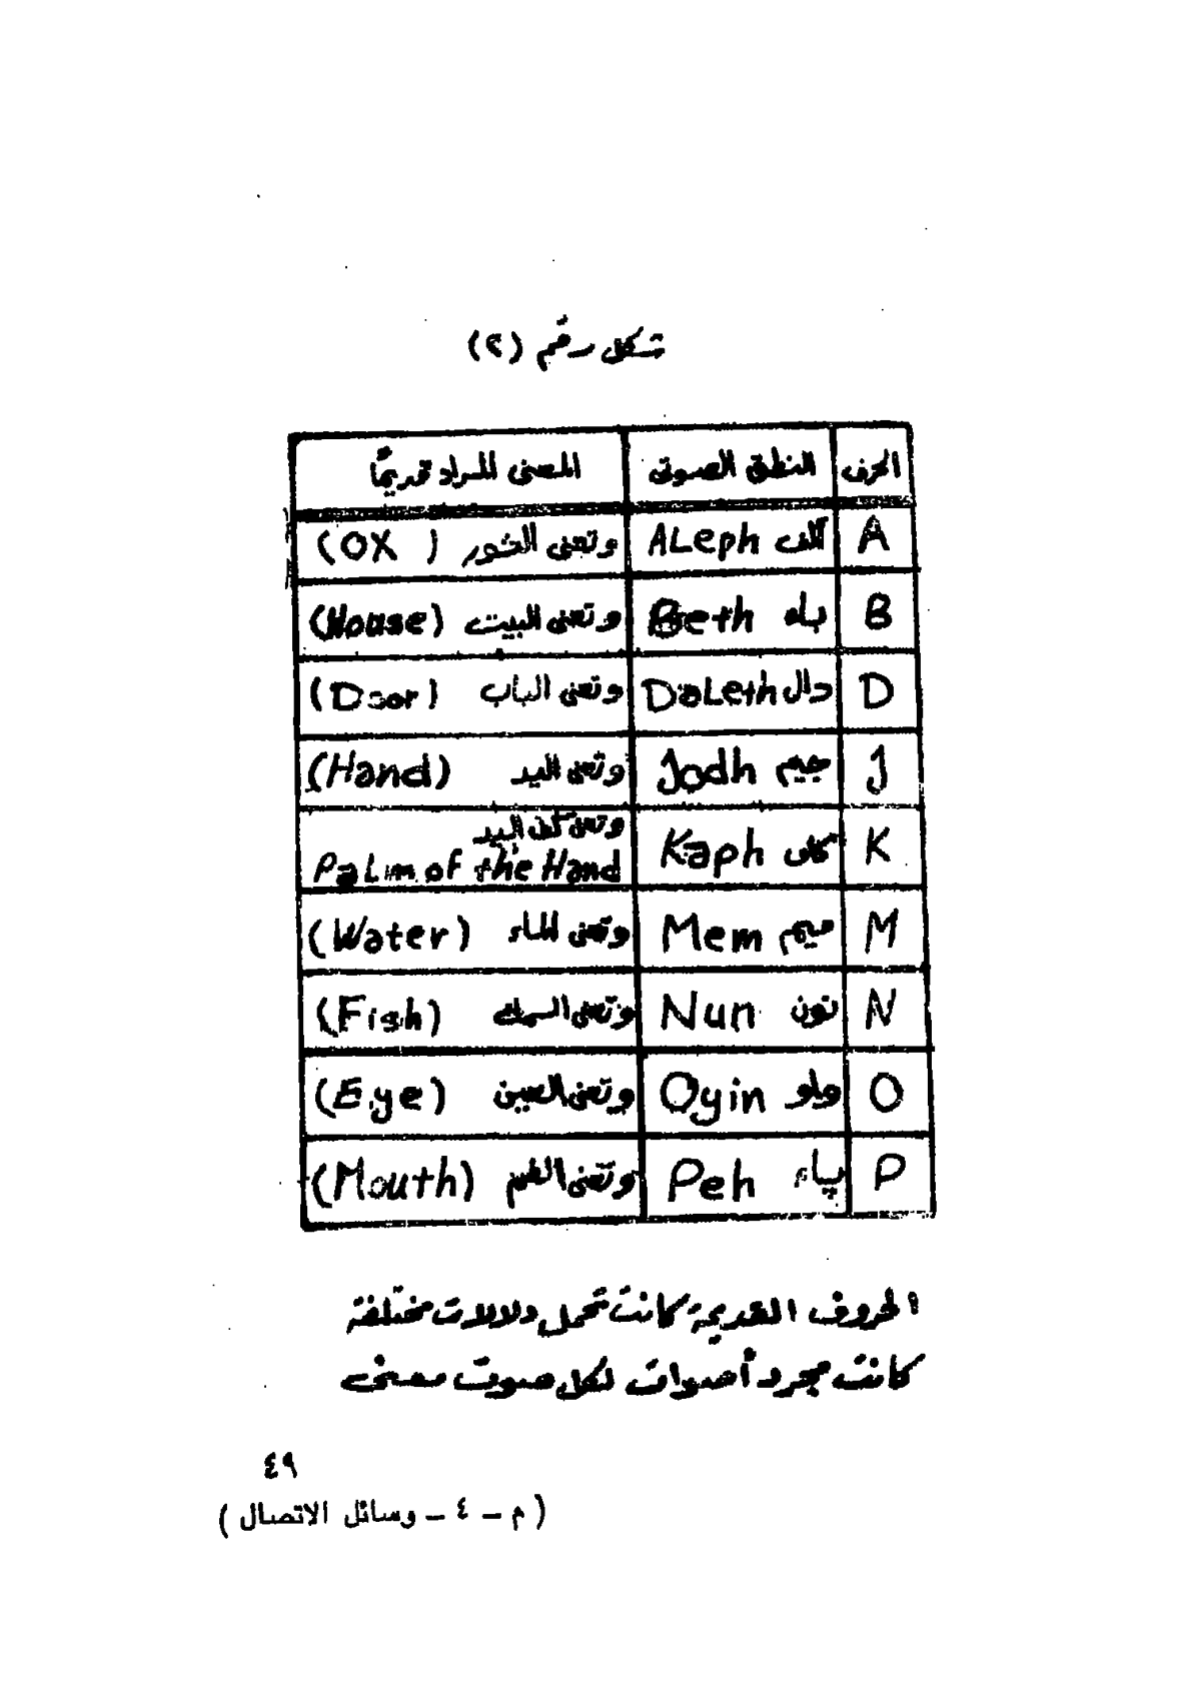 شكل رقم (٢)
الحرف النطق الصوتى المعنى المراد قديمًا
A ألف ALeph وتعنى الثور (OX)
B باء Beth وتعنى البيت (House)
D دال DaLeth وتعنى الباب (Door)
J جيم Jodh وتعنى اليد (Hand)
K كاف Kaph وتعنى كف اليد
PaLm of the Hand
M ميم Mem وتعنى الماء (Water)
N نون Nun وتعنى السمك (Fish)
O واو Oyin وتعنى العين (Eye)
P پاء Peh وتعنى الفم (Mouth)
الحروف القديمة كانت تحمل دلالات مختلفة
كانت مجرد أصوات لكل صوت معنى
٤٩
( م – ٤ – وسائل الاتصال )